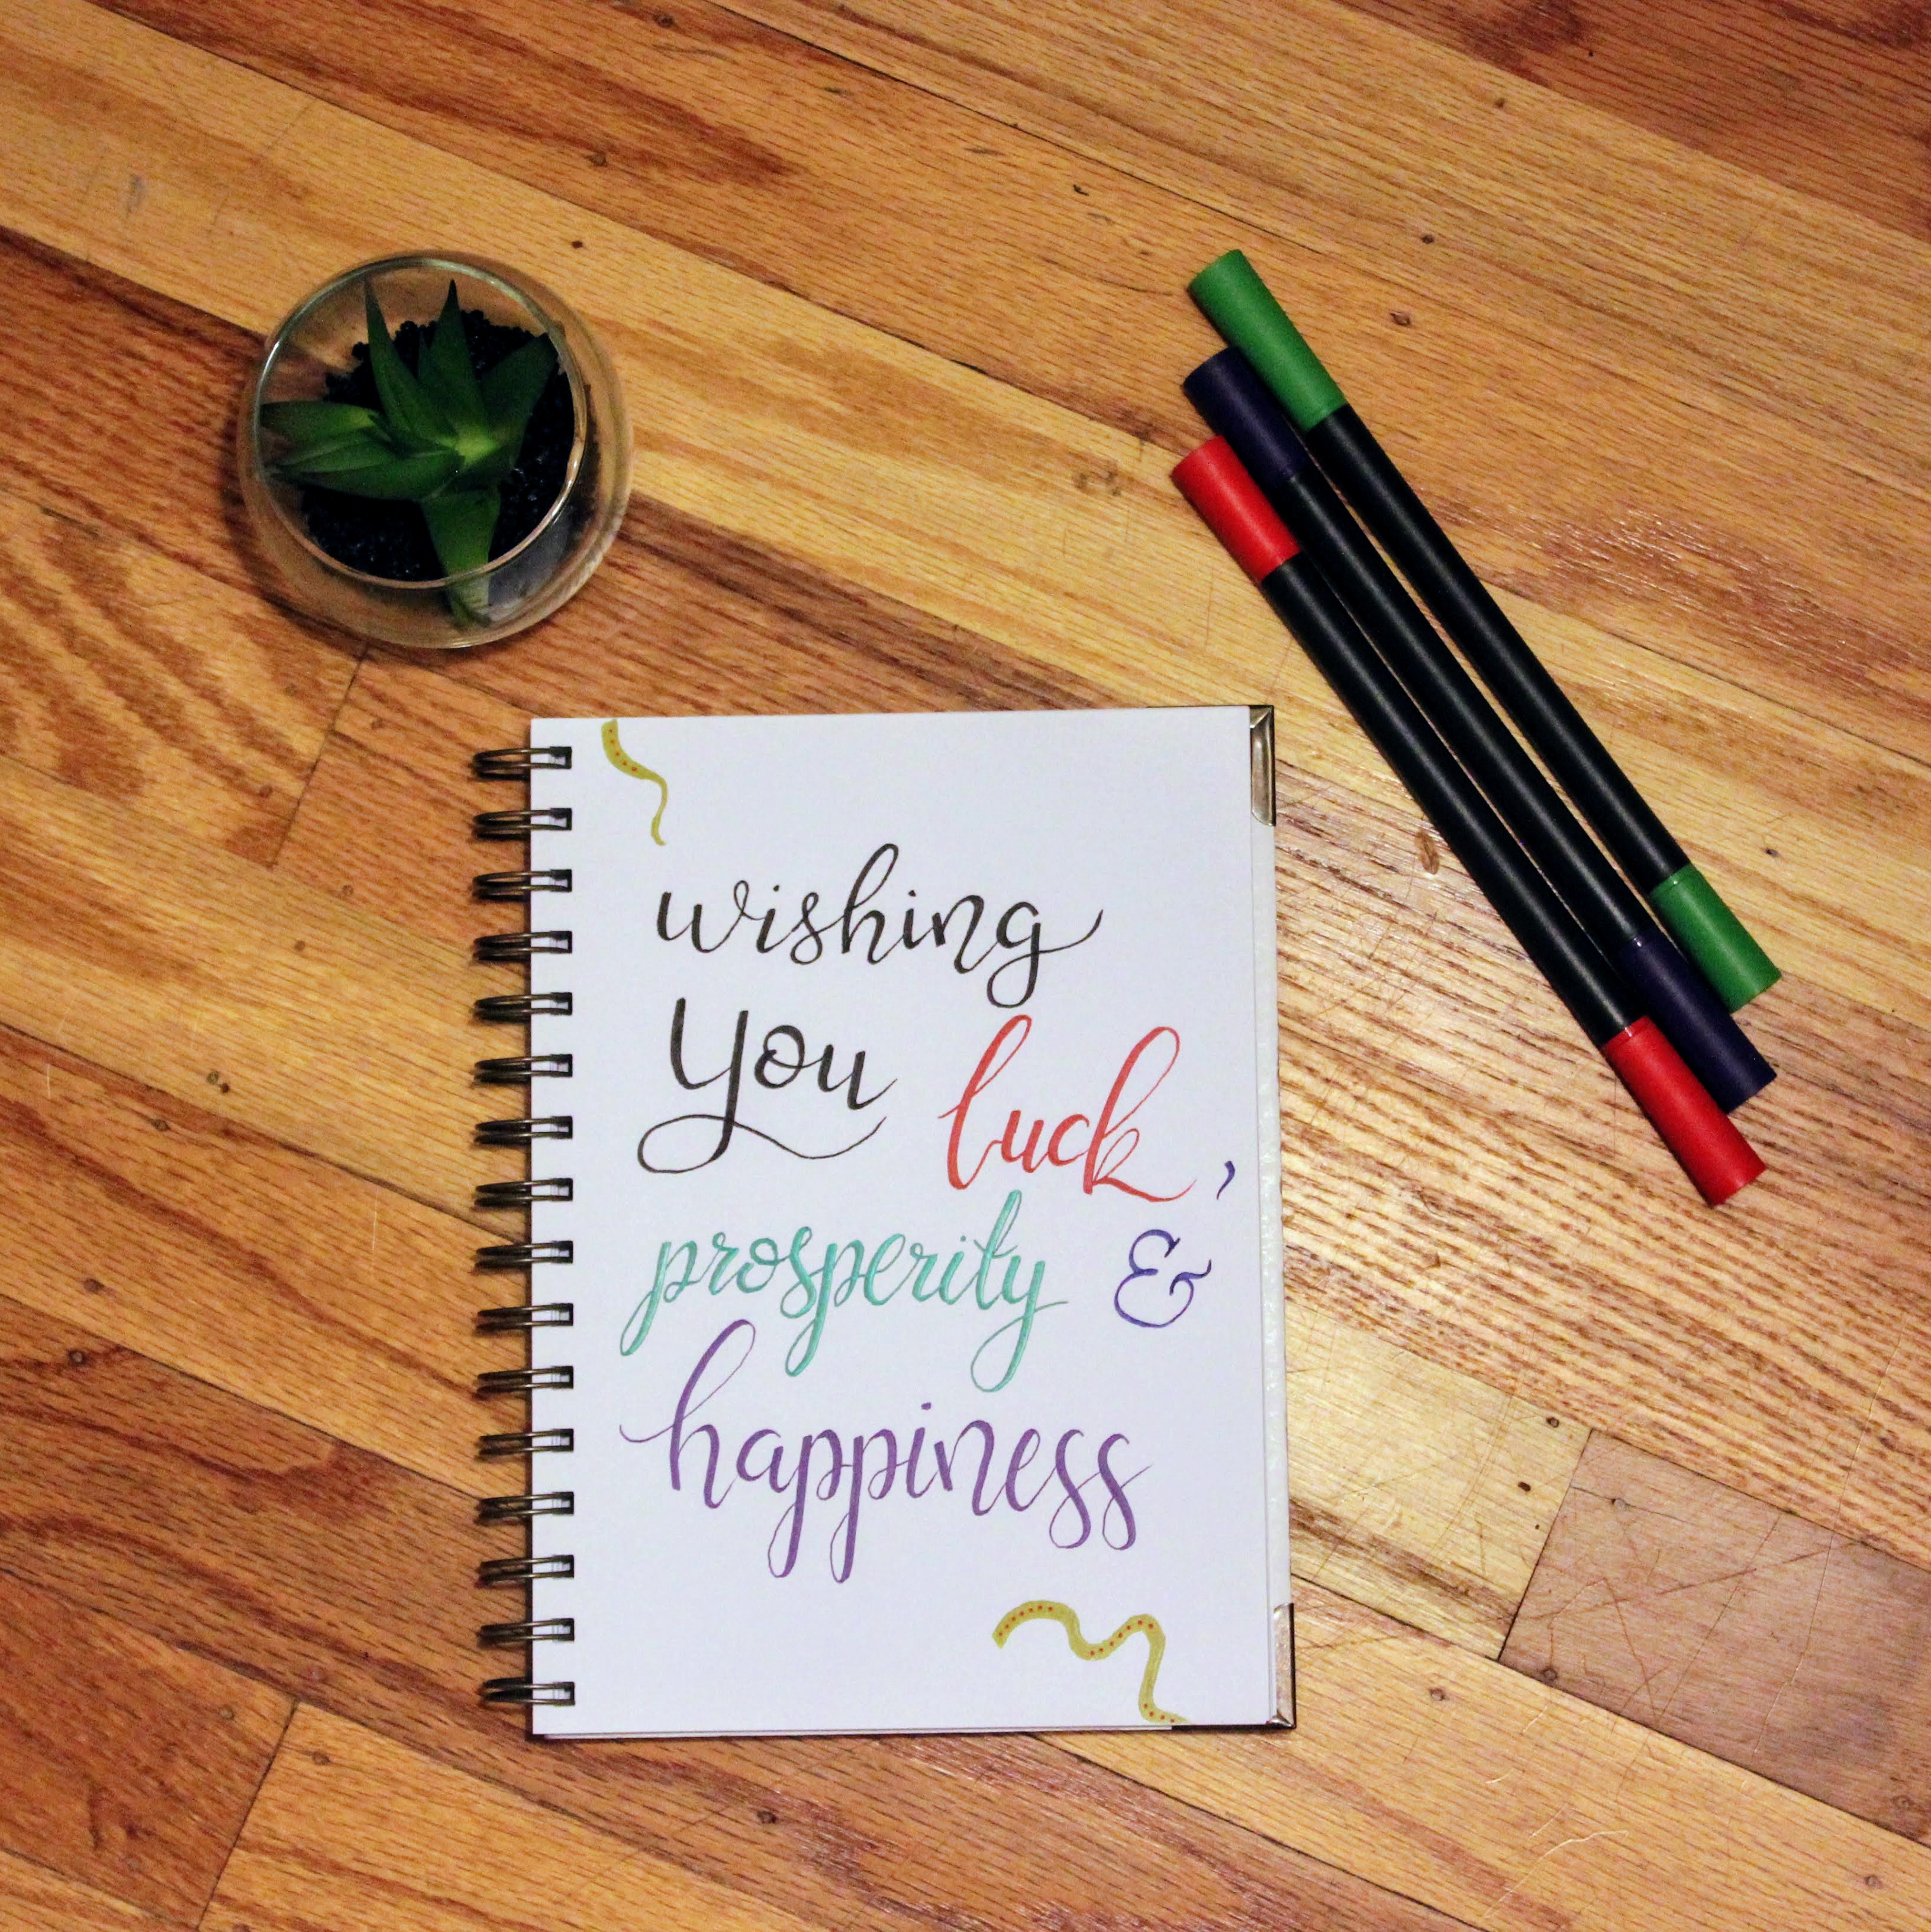 wishing
You luck,
prosperity &
happiness